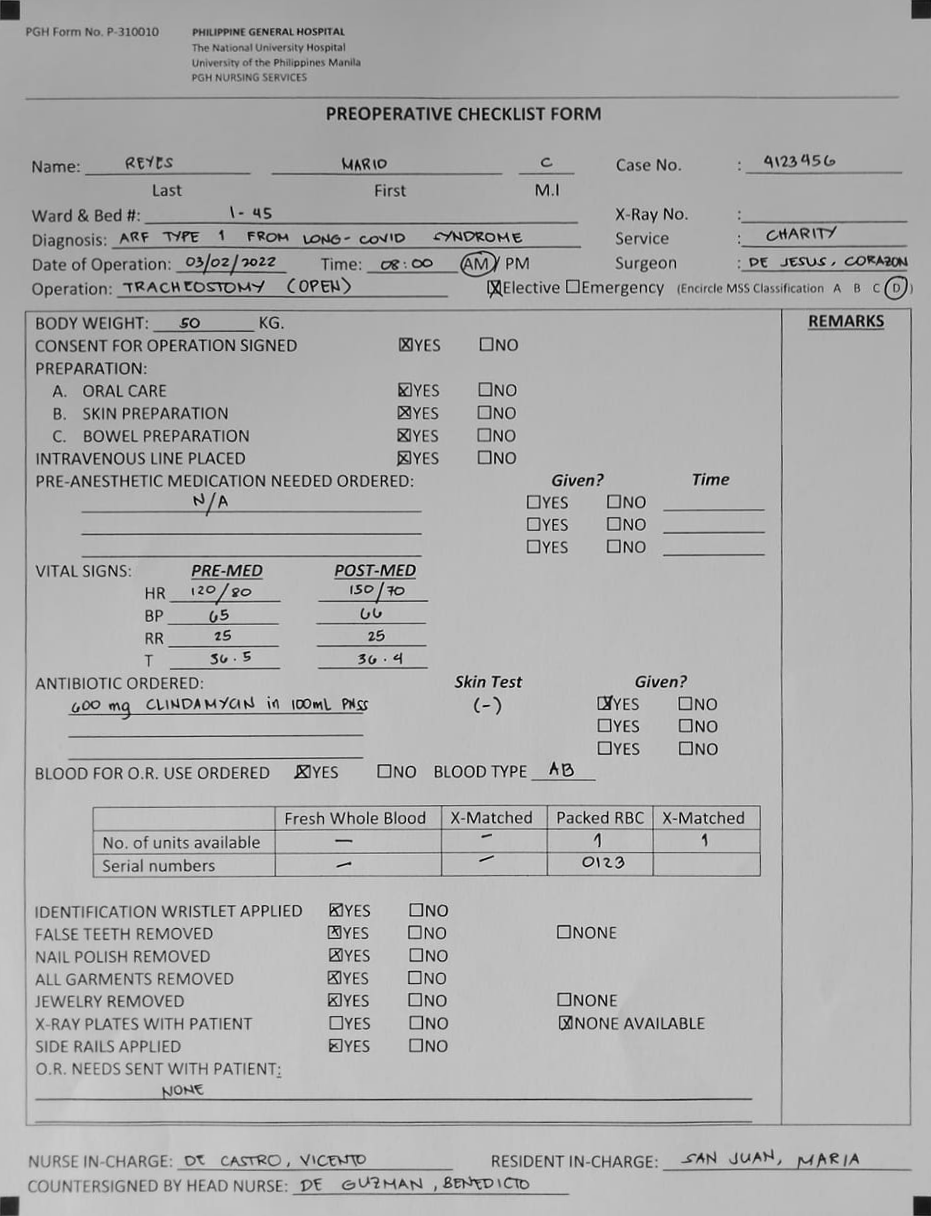 PGH Form No. P-310010 PHILIPPINE GENERAL HOSPITAL
The National University Hospital
University of the Philippines Manila
PGH NURSING SERVICES
PREOPERATIVE CHECKLIST FORM
Name: REYES MARIO C Case No. : 9123456
Last First M.I
Ward & Bed #: 1-45 X-Ray No. :
Diagnosis: ARF TYPE 1 FROM LONG-COVID SYNDROME Service : CHARITY
Date of Operation: 03/02/2022 Time: 08:00 AM/ PM Surgeon : DE JESUS, CORAZON
Operation: TRACHEOSTOMY (OPEN) ☒Elective ☐Emergency (Encircle MSS Classification A B C D)
BODY WEIGHT: 50 KG. REMARKS
CONSENT FOR OPERATION SIGNED ☒YES ☐NO
PREPARATION:
A. ORAL CARE ☒YES ☐NO
B. SKIN PREPARATION ☒YES ☐NO
C. BOWEL PREPARATION ☒YES ☐NO
INTRAVENOUS LINE PLACED ☒YES ☐NO
PRE-ANESTHETIC MEDICATION NEEDED ORDERED: Given? Time
N/A ☐YES ☐NO
☐YES ☐NO
☐YES ☐NO
VITAL SIGNS: PRE-MED POST-MED
HR 120/80 150/70
BP 65 66
RR 25 25
T 36.5 36.4
ANTIBIOTIC ORDERED: Skin Test Given?
600 mg CLINDAMYCIN in 100mL PNSS (-) ☒YES ☐NO
☐YES ☐NO
☐YES ☐NO
BLOOD FOR O.R. USE ORDERED ☒YES ☐NO BLOOD TYPE AB
Fresh Whole Blood X-Matched Packed RBC X-Matched
No. of units available — — 1 1
Serial numbers — — 0123
IDENTIFICATION WRISTLET APPLIED ☒YES ☐NO
FALSE TEETH REMOVED ☒YES ☐NO ☐NONE
NAIL POLISH REMOVED ☒YES ☐NO
ALL GARMENTS REMOVED ☒YES ☐NO
JEWELRY REMOVED ☒YES ☐NO ☐NONE
X-RAY PLATES WITH PATIENT ☐YES ☐NO ☒NONE AVAILABLE
SIDE RAILS APPLIED ☒YES ☐NO
O.R. NEEDS SENT WITH PATIENT:
NONE
NURSE IN-CHARGE: DE CASTRO, VICENTO RESIDENT IN-CHARGE: SAN JUAN, MARIA
COUNTERSIGNED BY HEAD NURSE: DE GUZMAN, BENEDICTO